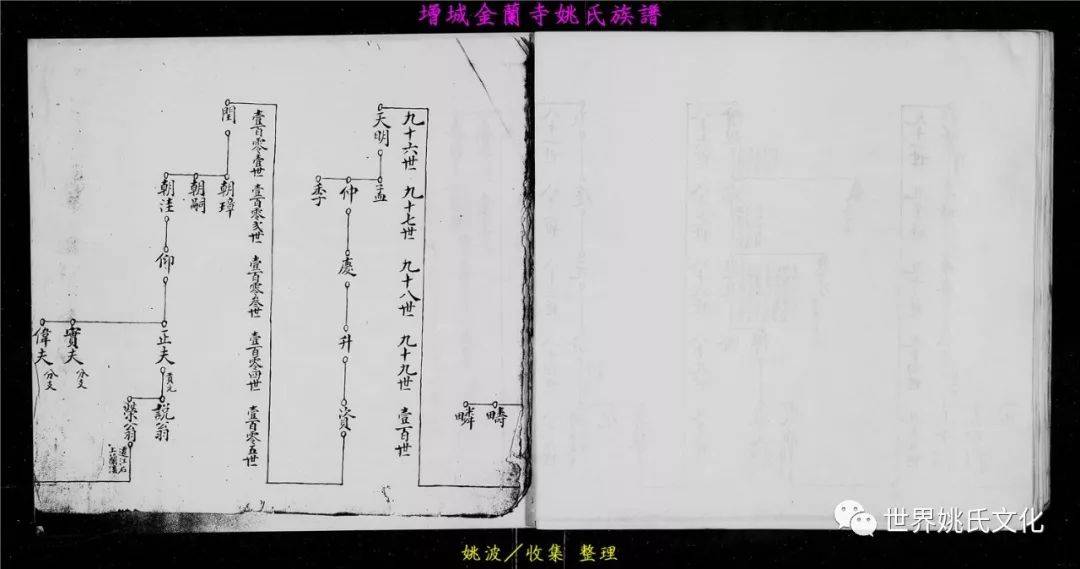 增城金蘭寺姚氏族譜
疇
疄
九十六世 九十七世 九十八世 九十九世 壹百世
天明
孟
仲
季
慶
升
資
壹百零壹世 壹百零弍世 壹百零叁世 壹百零四世 壹百零五世
閏
朝璋
朝嗣
朝洼
仰
正夫
實夫 分支
偉夫 分支
說翁
榮翁
世界姚氏文化
姚波／收集 整理